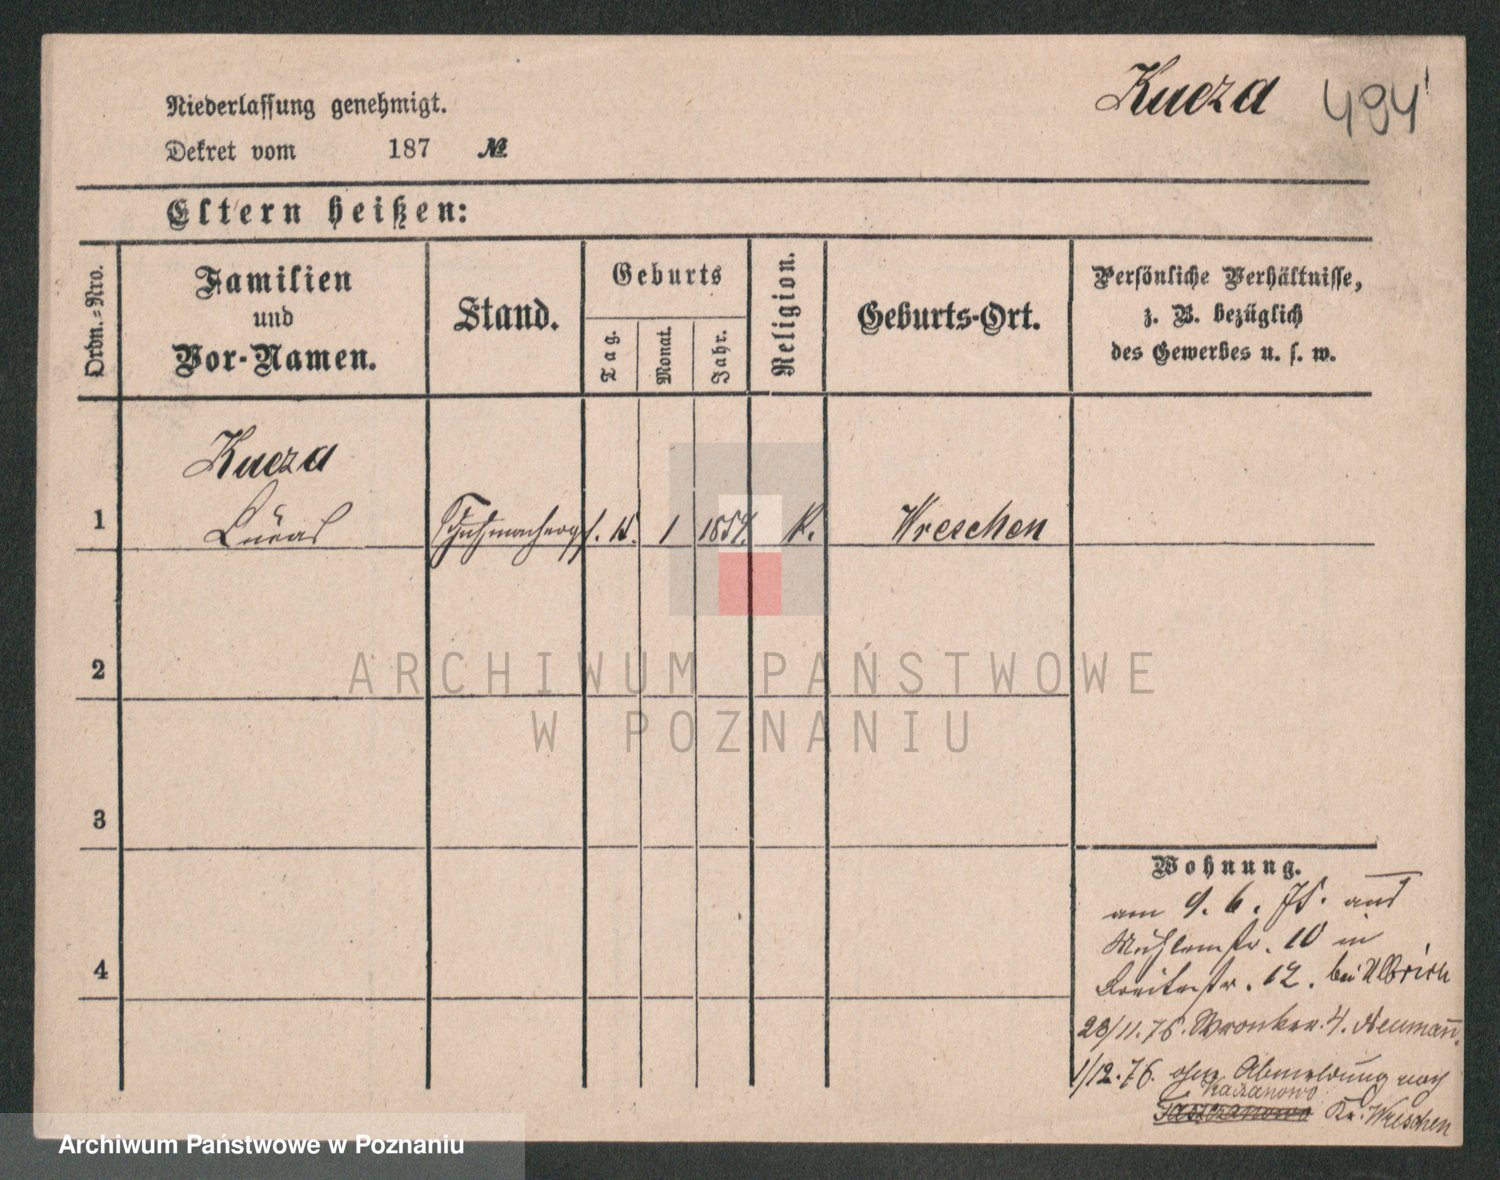 Kucza 494
Niederlassung genehmigt.
Dekret vom 187 №
Eltern heißen:
Ordn.-Nro.
Familien
und
Vor-Namen.
Stand.
Geburts
Tag.
Monat.
Jahr.
Religion.
Geburts-Ort.
Persönliche Verhältnisse,
z. B. bezüglich
des Gewerbes u. s. w.
Kucza
1 Lucas Schuhmacherges. 1 K. Wreschen
2
ARCHIWUM PAŃSTWOWE
W POZNANIU
3
4
Wohnung.
am 9. 6. 75. aus
Mühlenstr. 10 in
Breitestr. 12. bei Ulbrich
28/11. 76. Wronker. 4. Neumann.
1/12. 76. ohne Abmeldung nach
Kaczanowo
Kr. Wreschen
Archiwum Państwowe w Poznaniu